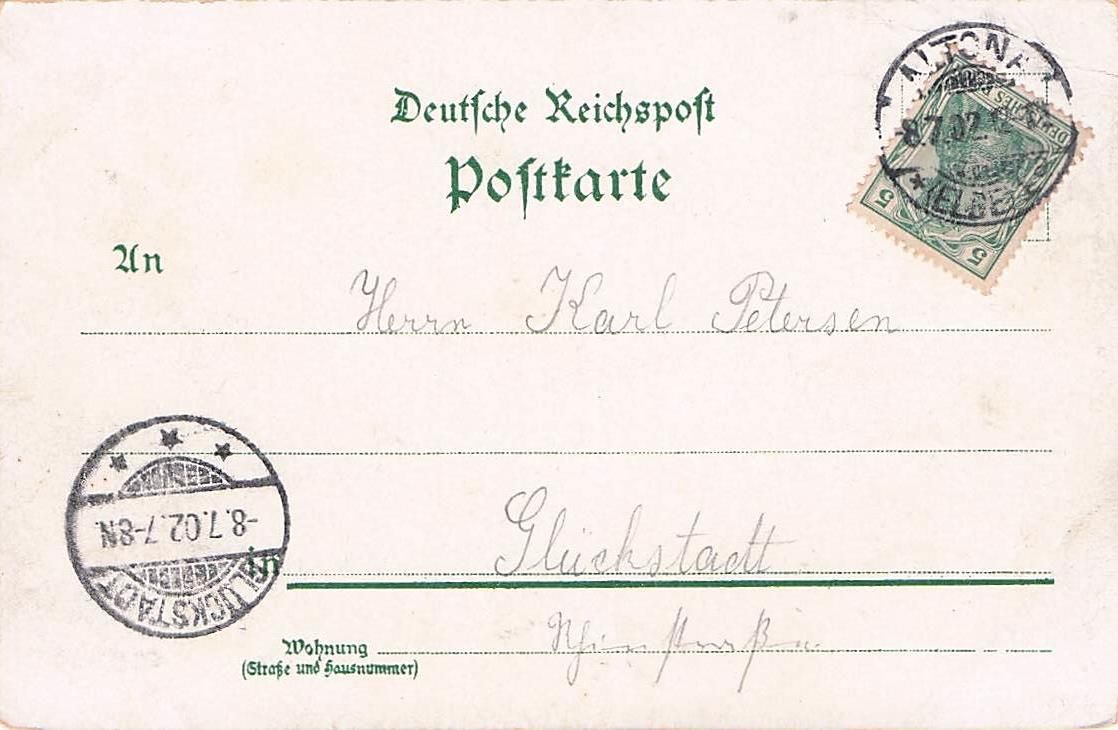 Deutsche Reichspost
Postkarte
ALTONA
-8.7.02.
* (ELBE)
DEUTSCHES
5 5
An
Herrn Karl Petersen
-8.7.02.7-8N.
GLÜCKSTADT
in Glückstadt
Wohnung
(Straße und Hausnummer)